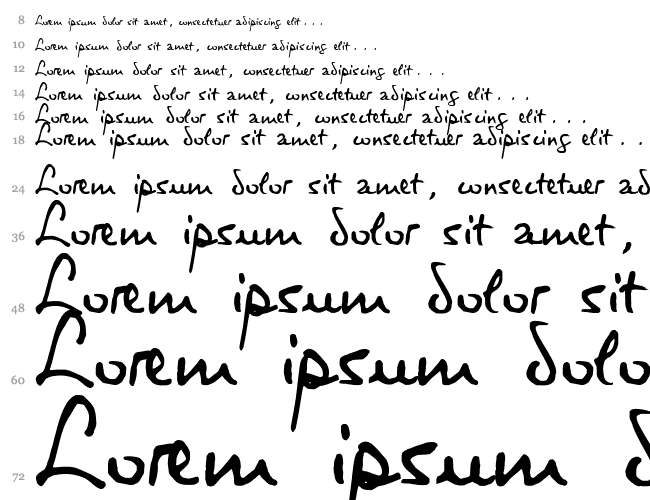 8 Lorem ipsum dolor sit amet, consectetuer adipiscing elit . . .
10 Lorem ipsum dolor sit amet, consectetuer adipiscing elit . . .
12 Lorem ipsum dolor sit amet, consectetuer adipiscing elit . . .
14 Lorem ipsum dolor sit amet, consectetuer adipiscing elit . . .
16 Lorem ipsum dolor sit amet, consectetuer adipiscing elit . . .
18 Lorem ipsum dolor sit amet, consectetuer adipiscing elit . .
24 Lorem ipsum dolor sit amet, consectetuer ad
36 Lorem ipsum dolor sit amet,
48 Lorem ipsum dolor sit
60 Lorem ipsum dolo
72 Lorem ipsum d